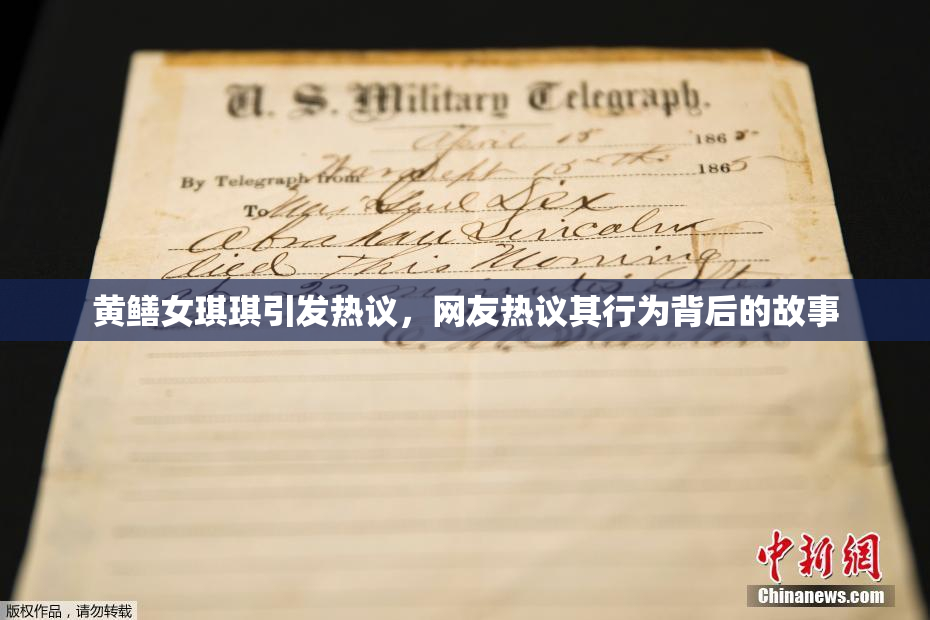 U. S. Military Telegraph.
April 15 1865
By Telegraph from War Dept 15th 1865
To Maj Genl Dix
Abraham Lincoln
died This Morning
22 minutes after
黄鳝女琪琪引发热议，网友热议其行为背后的故事
E. M. Stanton
中新网
Chinanews.com
版权作品，请勿转载